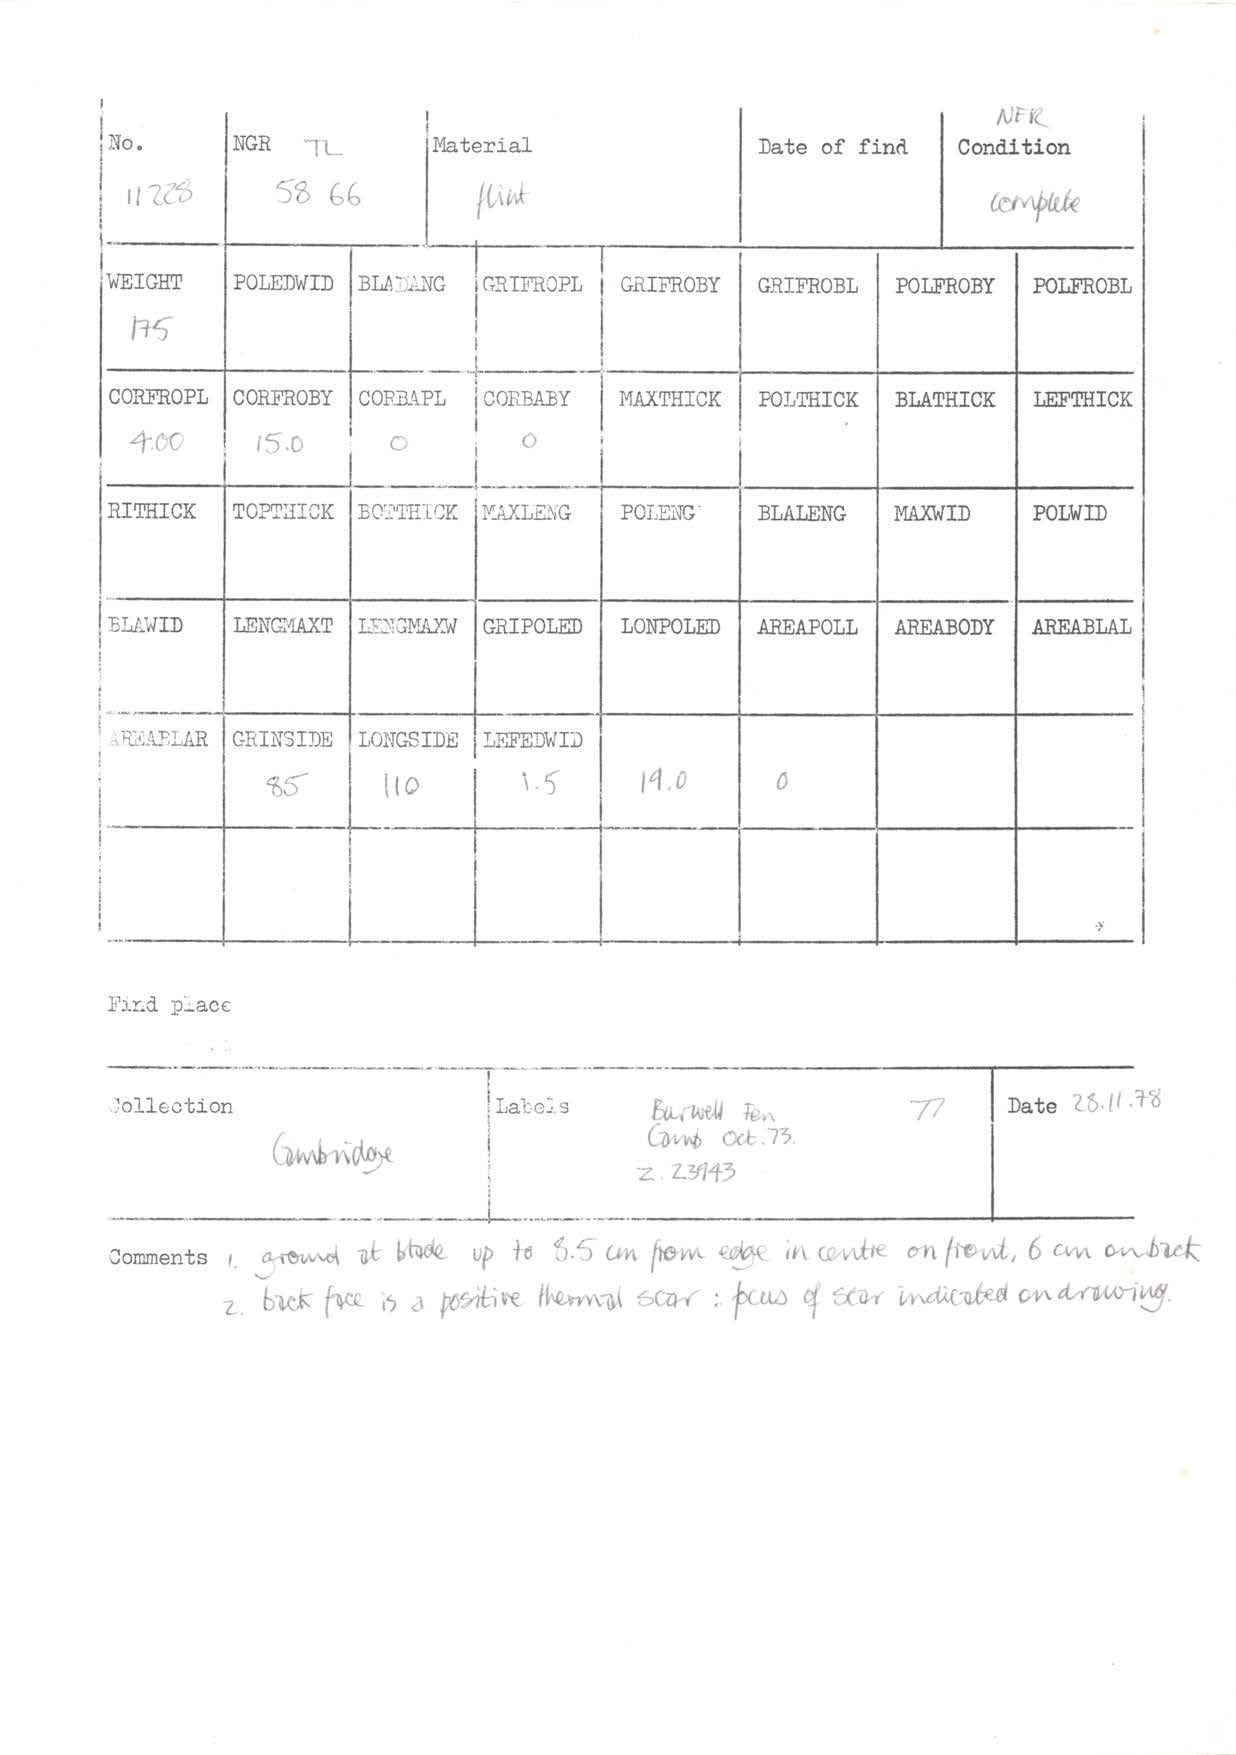 NFR
No. NGR TL Material Date of find Condition
11228 58 66 flint complete
WEIGHT POLEDWID BLADANG GRIFROPL GRIFROBY GRIFROBL POLFROBY POLFROBL
175
CORFROPL CORFROBY CORBAPL CORBABY MAXTHICK POLTHICK BLATHICK LEFTHICK
4.00 15.0 0 0
RITHICK TOPTHICK BOTTHICK MAXLENG POLENG BLALENG MAXWID POLWID
BLAWID LENGMAXT LENGMAXW GRIPOLED LONPOLED AREAPOLL AREABODY AREABLAL
AREABLAR GRINSIDE LONGSIDE LEFEDWID
85 110 1.5 19.0 0
Find place
Collection Labels Burwell Fen 77 Date 28.11.78
Cambridge Camb Oct. 73.
Z. 23943
Comments 1. ground at blade up to 8.5 cm from edge in centre on front, 6 cm on back
2. back face is a positive thermal scar : focus of scar indicated on drawing.